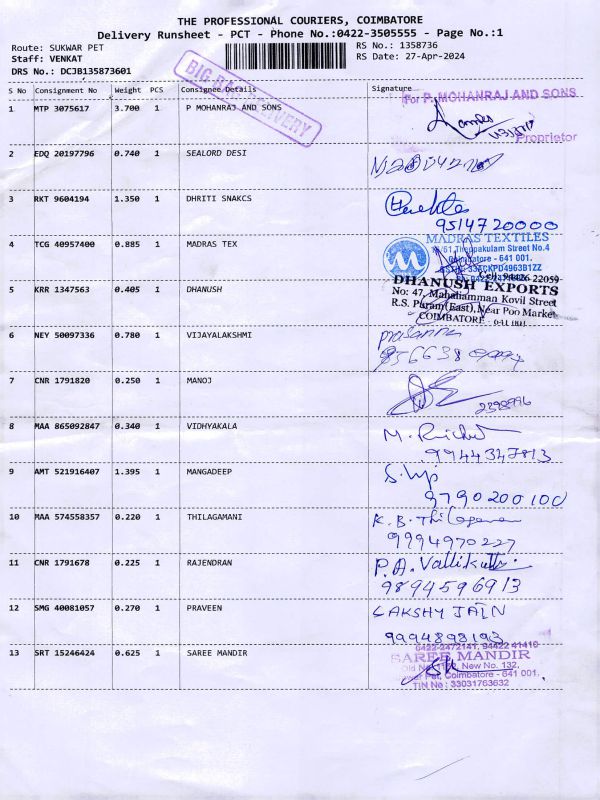 THE PROFESSIONAL COURIERS, COIMBATORE
Delivery Runsheet - PCT - Phone No.:0422-3505555 - Page No.:1
Route: SUKWAR PET
RS No.: 1358736
Staff: VENKAT
RS Date: 27-Apr-2024
DRS No.: DCJB135873601
BIG DAY DELIVERY
S No Consignment No Weight PCS Consignee Details Signature
1 MTP 3075617 3.700 1 P MOHANRAJ AND SONS
For P. MOHANRAJ AND SONS
Proprietor
2 EDQ 20197796 0.740 1 SEALORD DESI
3 RKT 9604194 1.350 1 DHRITI SNAKCS
9514720000
4 TCG 40957400 0.885 1 MADRAS TEX
MADRAS TEXTILES
Street No.4
Coimbatore - 641 001.
5 KRR 1347563 0.405 1 DHANUSH
DHANUSH EXPORTS
No: 47, Mahaliamman Kovil Street
R.S. Puram(East), Near Poo Market
COIMBATORE - 641 001
6 NEY 50097336 0.780 1 VIJAYALAKSHMI
Prasanna
7 CNR 1791820 0.250 1 MANOJ
8 MAA 865092847 0.340 1 VIDHYAKALA
9944347813
9 AMT 521916407 1.395 1 MANGADEEP
9790200100
10 MAA 574558357 0.220 1 THILAGAMANI
K. B. Thilagavan
9994970227
11 CNR 1791678 0.225 1 RAJENDRAN
P.A. Vallikutti
9894596913
12 SMG 40081057 0.270 1 PRAVEEN
LAKSHY JAIN
9994898193
13 SRT 15246424 0.625 1 SAREE MANDIR
0422-2472141, 94422 41410
SAREE MANDIR
New No. 132,
Pet, Coimbatore - 641 001.
TIN No : 33031763632